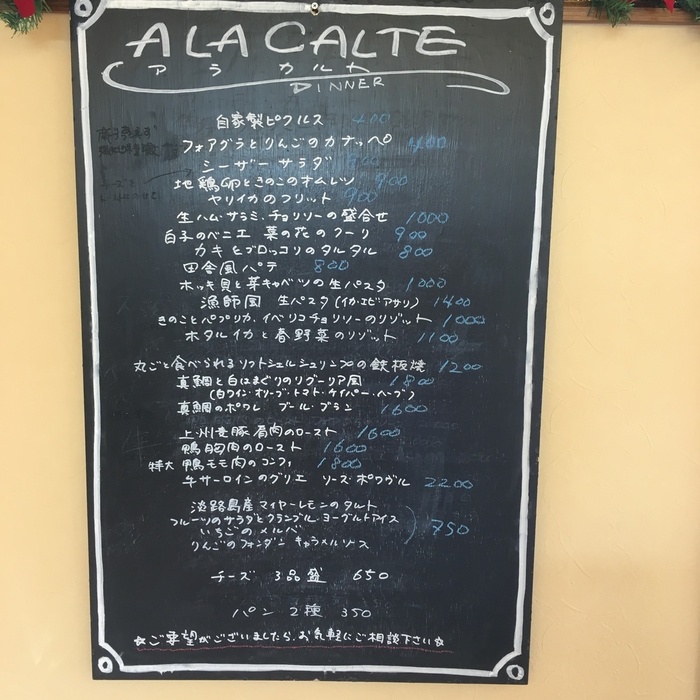 ALA CALTE
アラカルト
DINNER
自家製ピクルス 400
フォアグラとりんごのカナッペ 400
シーザーサラダ 900
地鶏卵ときのこのオムレツ 900
ヤリイカのフリット 900
生ハム・サラミ・チョリソーの盛合せ 1000
白子のベニエ 菜の花のクーリ 900
カキとブロッコリのタルタル 800
田舎風パテ 800
ホッキ貝と芽キャベツの生パスタ 1000
漁師風 生パスタ(イカ・エビ・アサリ) 1400
きのことパプリカ、イベリコチョリソーのリゾット 1000
ホタルイカと春野菜のリゾット 1100
丸ごと食べられるソフトシェルシュリンプの鉄板焼 1200
真鯛と白はまぐりのリグーリア風 1800
(白ワイン・オリーブ・トマト・ケイパー・ハーブ)
真鯛のポワレ ブール・ブラン 1600
上州麦豚肩肉のロースト 1600
鴨胸肉のロースト 1600
特大 鴨モモ肉のコンフィ 1800
牛サーロインのグリエ ソース・ポワヴル 2200
淡路島産マイヤーレモンのタルト
フルーツのサラダとクランブル・ヨーグルトアイス
いちごのメルバ 750
りんごのフォンダン キャラメルソース
チーズ 3品盛 650
パン 2種 350
☆ご要望がございましたら、お気軽にご相談下さい☆